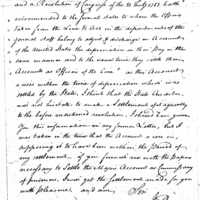 and a Resolution of Congress of the 10 July 1783 hath
recommended to the several states to whom the officers
taken from the Line to Act in the departments of the
general Staff belong to adjust & discharge on account
of the United States the depreciation on their Pay in the
same manner and to the same time they settle their
Accounts as Officers of the Line as the Accounts
come within the terms of depreciation which was
settled by the State, I think that the State Auditor
was not his Duty to make a Settlement agreeably
to the before mentioned resolution. I should have given
You this information in my former Letter, but I
was taken in the terms that the Account a
supposing it to have been within the Period of
my settlement if you furnish me with the papers
necessary to settle the Majors Account as Commissary
of prisoners. I will get the settlement made for you
with pleasure and am Sir